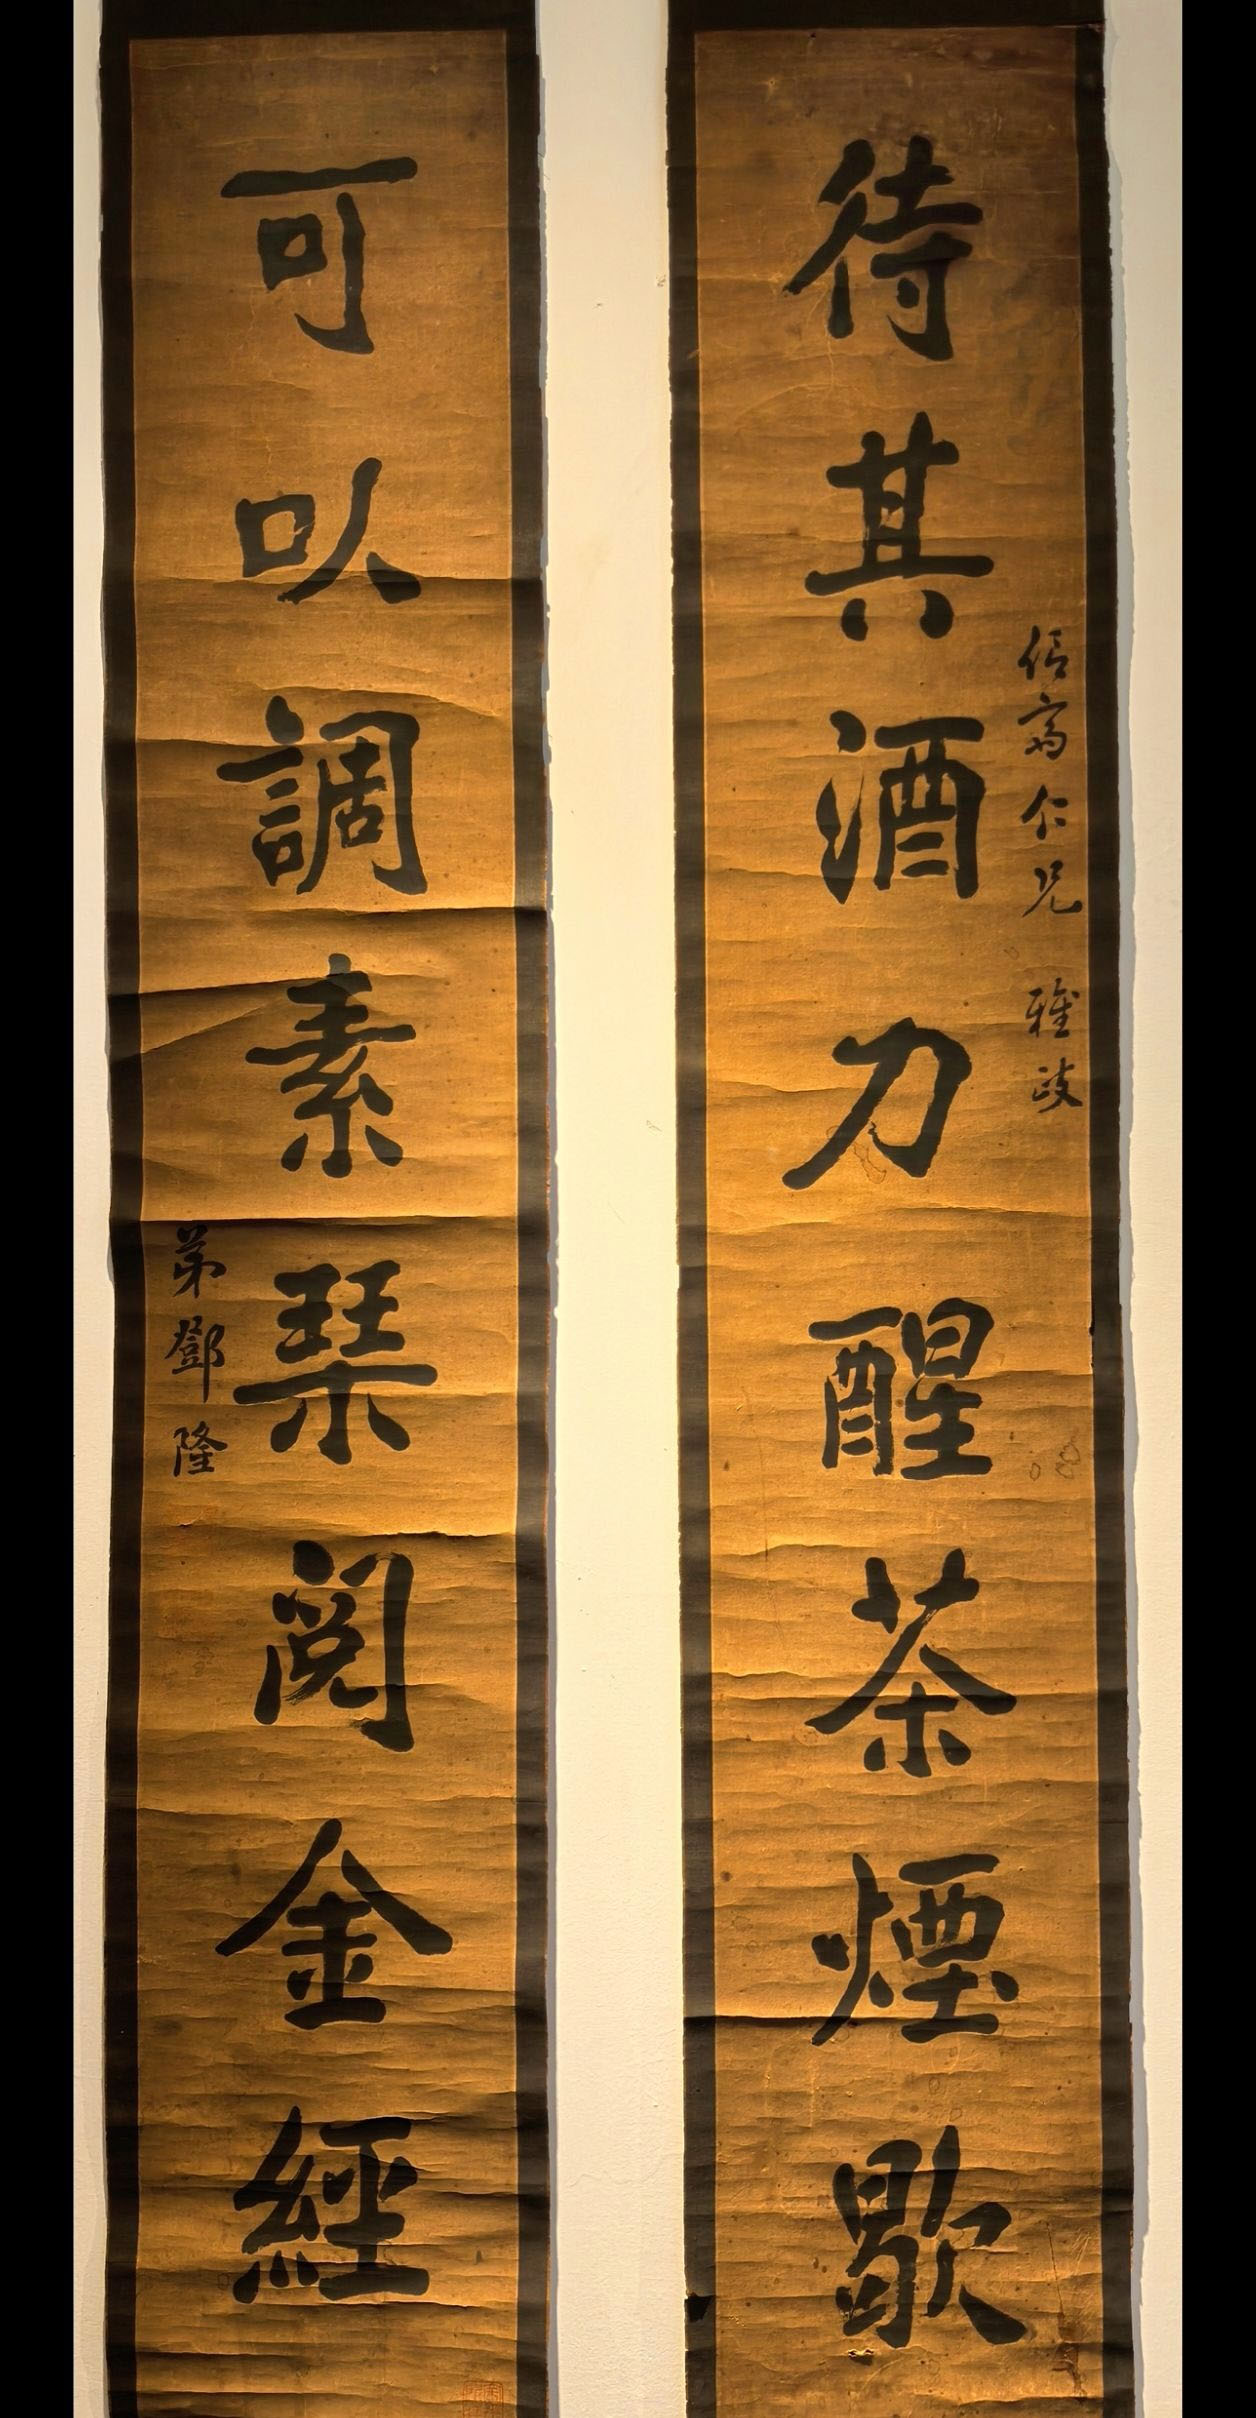 待其酒力醒茶煙歇
仁兄 雅政
可以調素琹閱金經
弟鄧隆